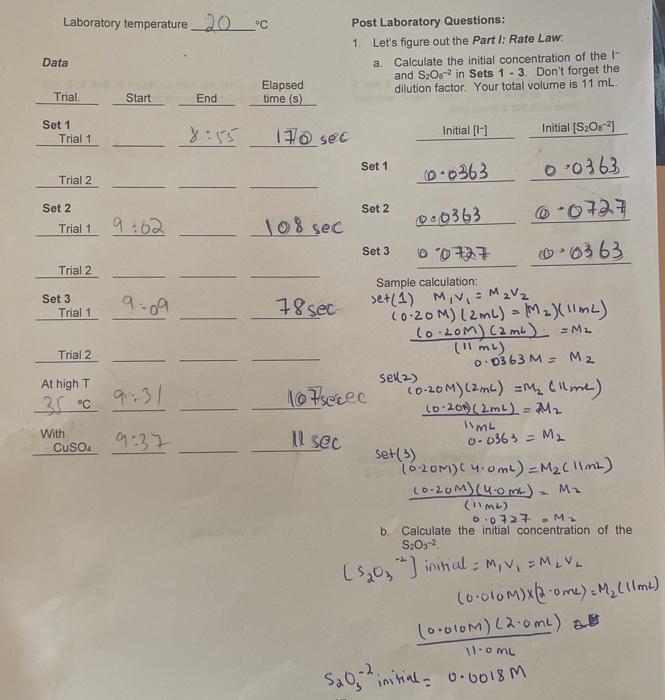 Laboratory temperature 20 °C
Data
Trial Start End Elapsed time (s)
Set 1
Trial 1 8:55 170 sec
Trial 2
Set 2
Trial 1 9:02 108 sec
Trial 2
Set 3
Trial 1 9:09 78 sec
Trial 2
At high T
35 °C 9:31 107 sec
With
CuSO₄ 9:37 11 sec
Post Laboratory Questions:
1. Let's figure out the Part I: Rate Law.
a. Calculate the initial concentration of the I⁻
and S₂O₈⁻² in Sets 1 - 3. Don't forget the
dilution factor. Your total volume is 11 mL.
Initial [I⁻] Initial [S₂O₈⁻²]
Set 1 0.0363 0.0363
Set 2 0.0363 0.0727
Set 3 0.0727 0.0363
Sample calculation:
set(1) M₁V₁ = M₂V₂
(0.20M)(2mL) = (M₂)(11mL)
(0.20M)(2mL) = M₂
(11mL)
0.0363M = M₂
set(2)
(0.20M)(2mL) = M₂(11mL)
(0.20M)(2mL) = M₂
11mL
0.0363 = M₂
set(3)
(0.20M)(4.0mL) = M₂(11mL)
(0.20M)(4.0mL) = M₂
(11mL)
0.0727 = M₂
b. Calculate the initial concentration of the
S₂O₃⁻².
[S₂O₃⁻²] initial = M₁V₁ = M₂V₂
(0.010M)×(2.0mL) = M₂(11mL)
(0.010M)(2.0mL)
11.0mL
S₂O₃⁻² initial = 0.0018M